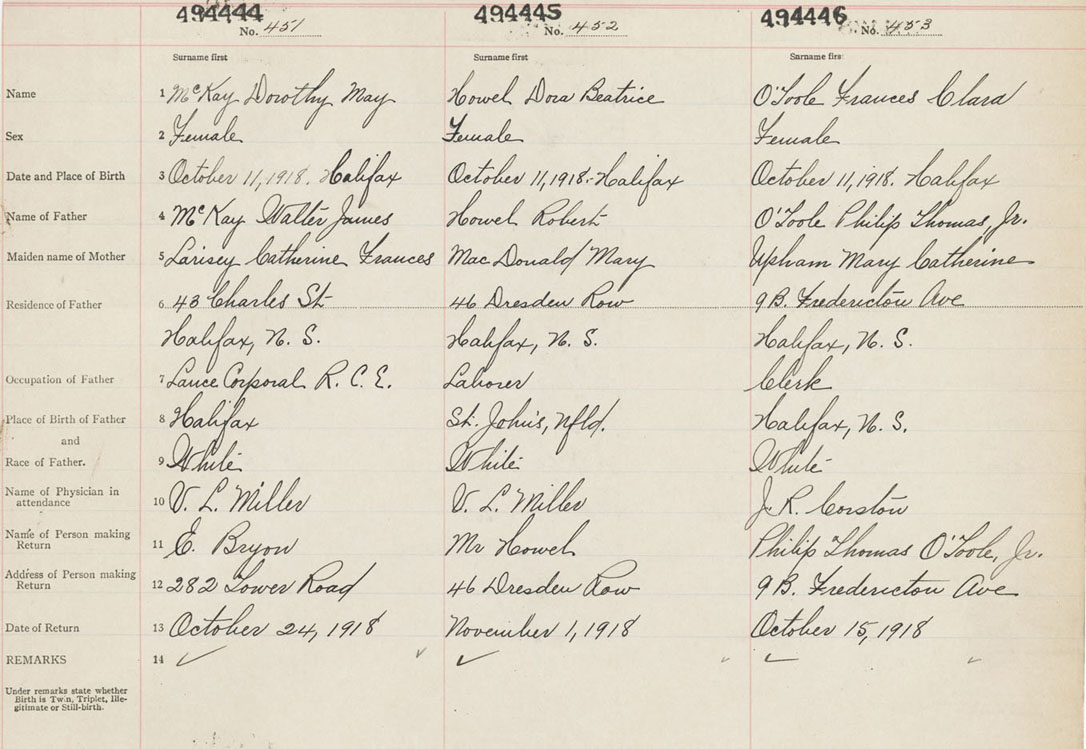 494444 494445 494446
No. 451 No. 452 No. 453
Surname first Surname first Surname first
Name 1 McKay Dorothy May Howel Dora Beatrice O'Toole Frances Clara
Sex 2 Female Female Female
Date and Place of Birth 3 October 11, 1918. Halifax October 11, 1918. Halifax October 11, 1918. Halifax
Name of Father 4 McKay Walter James Howel Robert O'Toole Philip Thomas, Jr.
Maiden name of Mother 5 Larisey Catherine Frances MacDonald Mary Upham Mary Catherine
Residence of Father 6 43 Charles St 46 Dresden Row 9B. Fredericton Ave
Halifax, N. S. Halifax, N. S. Halifax, N. S.
Occupation of Father 7 Lance Corporal R. C. E. Laborer Clerk
Place of Birth of Father 8 Halifax St. John's, Nfld. Halifax, N. S.
and
Race of Father. 9 White White White
Name of Physician in
attendance 10 V. L. Miller V. L. Miller J. R. Corston
Name of Person making
Return 11 E. Bryon Mr Howel Philip Thomas O'Toole, Jr.
Address of Person making
Return 12 282 Lower Road 46 Dresden Row 9B. Fredericton Ave
Date of Return 13 October 24, 1918 November 1, 1918 October 15, 1918
REMARKS 14
Under remarks state whether
Birth is Twin, Triplet, Ille-
gitimate or Still-birth.